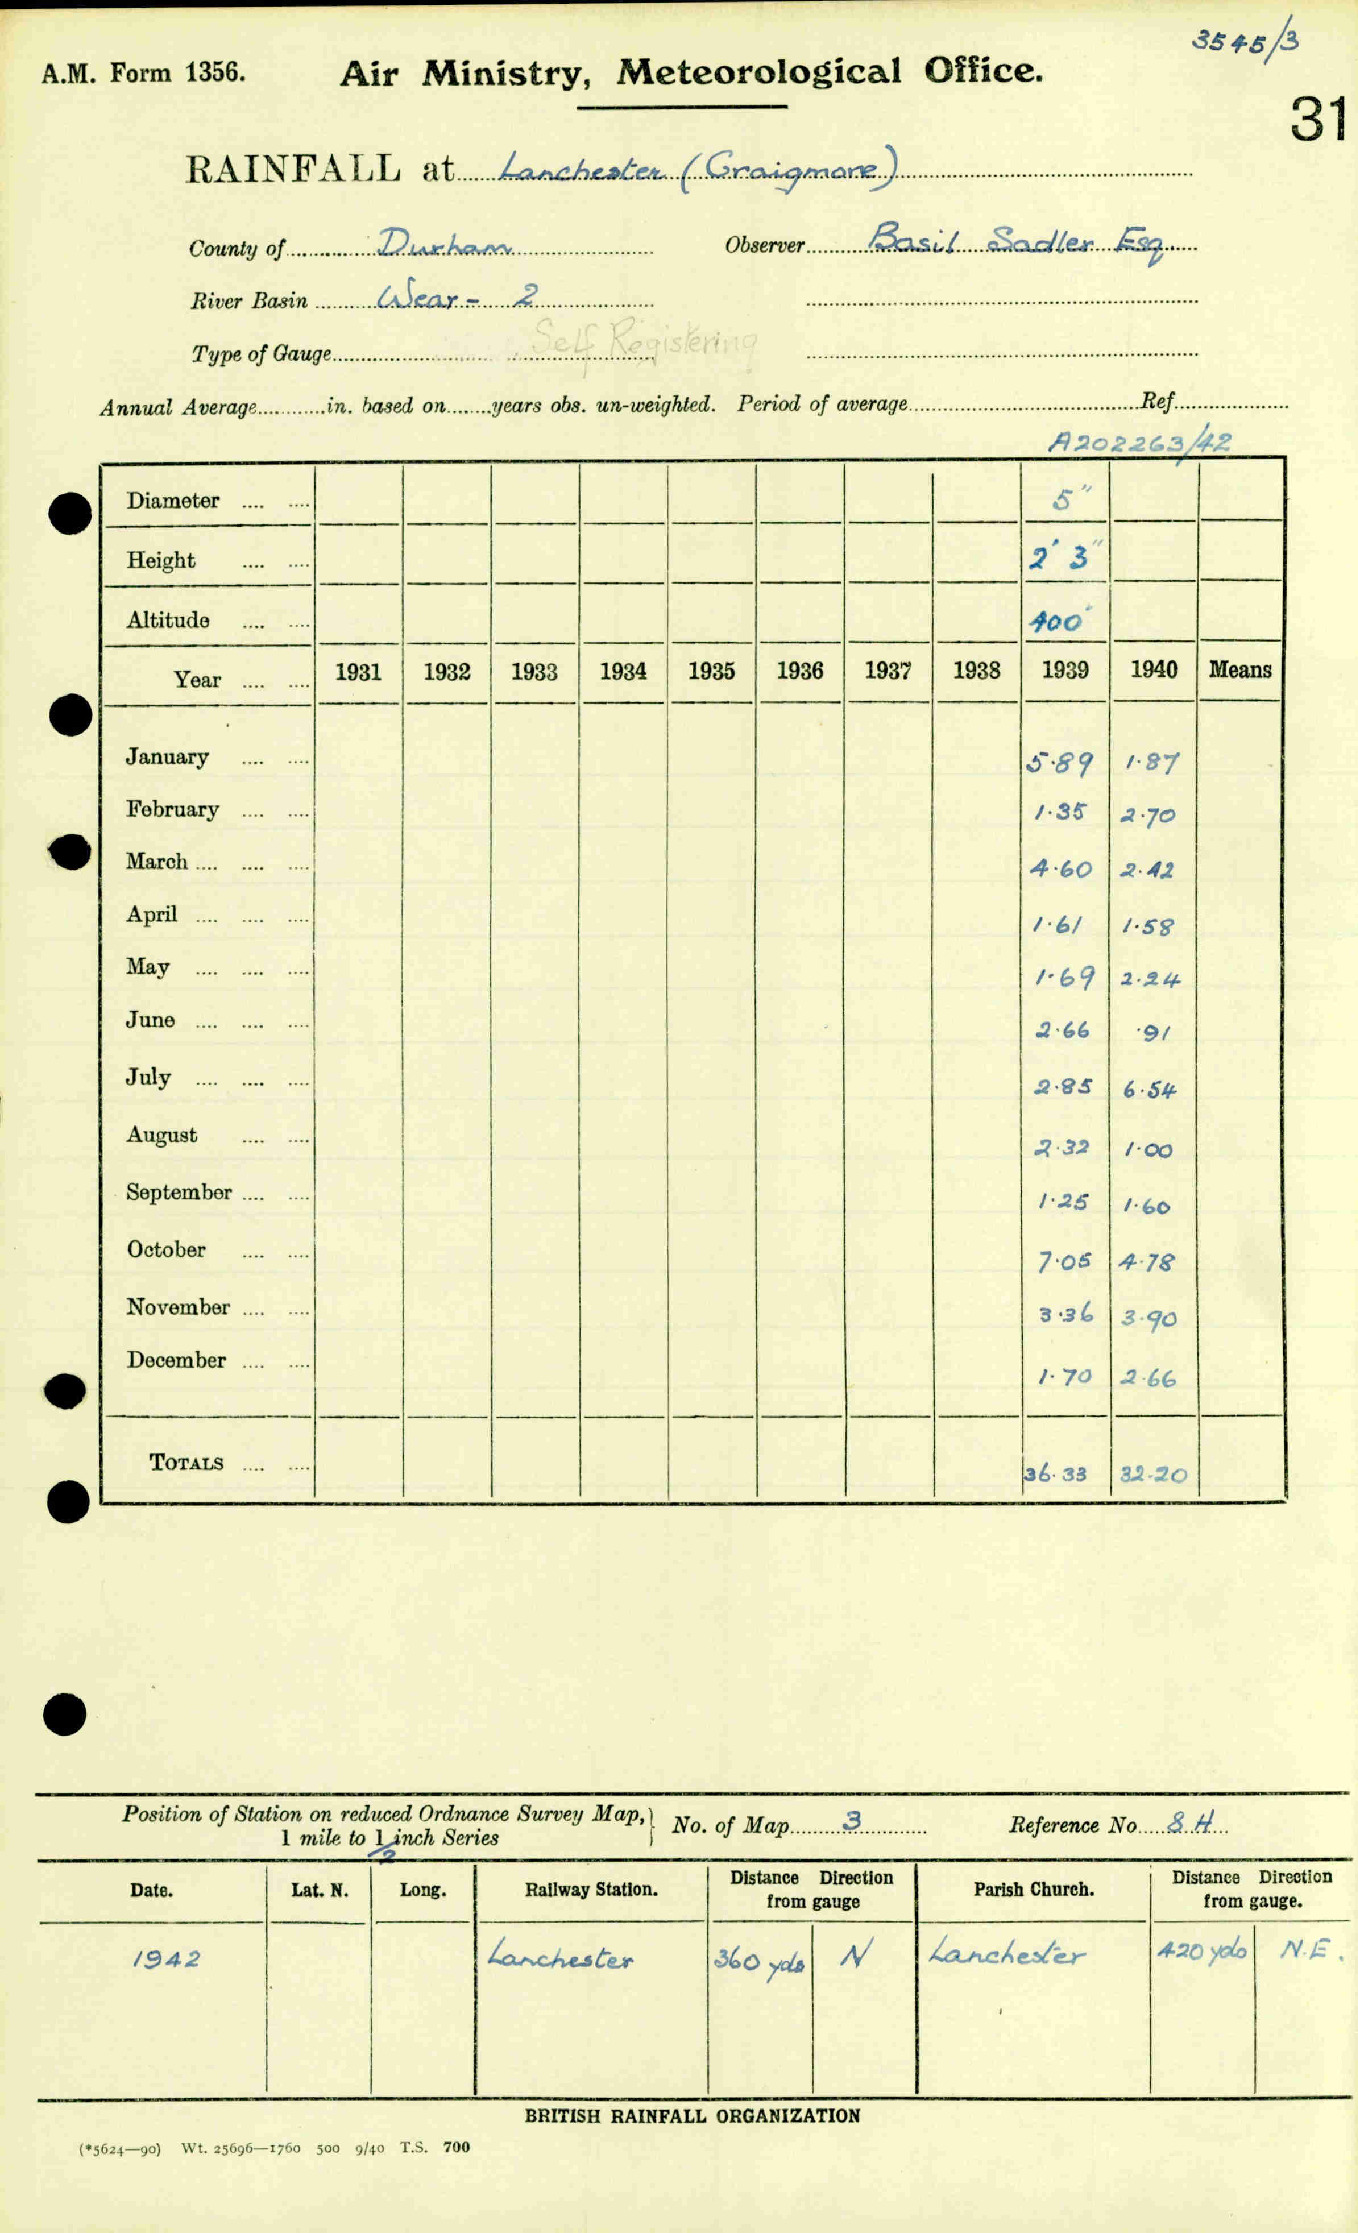 3545/3
A.M. Form 1356. Air Ministry, Meteorological Office.
31
RAINFALL at Lanchester (Craigmore)
County of Durham Observer Basil Sadler Esq.
River Basin Wear - 2
Type of Gauge Self Registering
Annual Average in. based on years obs. un-weighted. Period of average Ref
A202263/42
Diameter 5"
Height 2' 3"
Altitude 400'
Year 1931 1932 1933 1934 1935 1936 1937 1938 1939 1940 Means
January 5.89 1.87
February 1.35 2.70
March 4.60 2.42
April 1.61 1.58
May 1.69 2.24
June 2.66 .91
July 2.85 6.54
August 2.32 1.00
September 1.25 1.60
October 7.05 4.78
November 3.36 3.90
December 1.70 2.66
TOTALS 36.33 32.20
Position of Station on reduced Ordnance Survey Map, No. of Map 3 Reference No. 8 H
1 mile to 1 inch Series
1/2
Date. Lat. N. Long. Railway Station. Distance Direction from gauge Parish Church. Distance Direction from gauge.
1942 Lanchester 360 yds N Lanchester 420 yds N.E.
BRITISH RAINFALL ORGANIZATION
(*5624—90) Wt. 25696—1760 500 9/40 T.S. 700